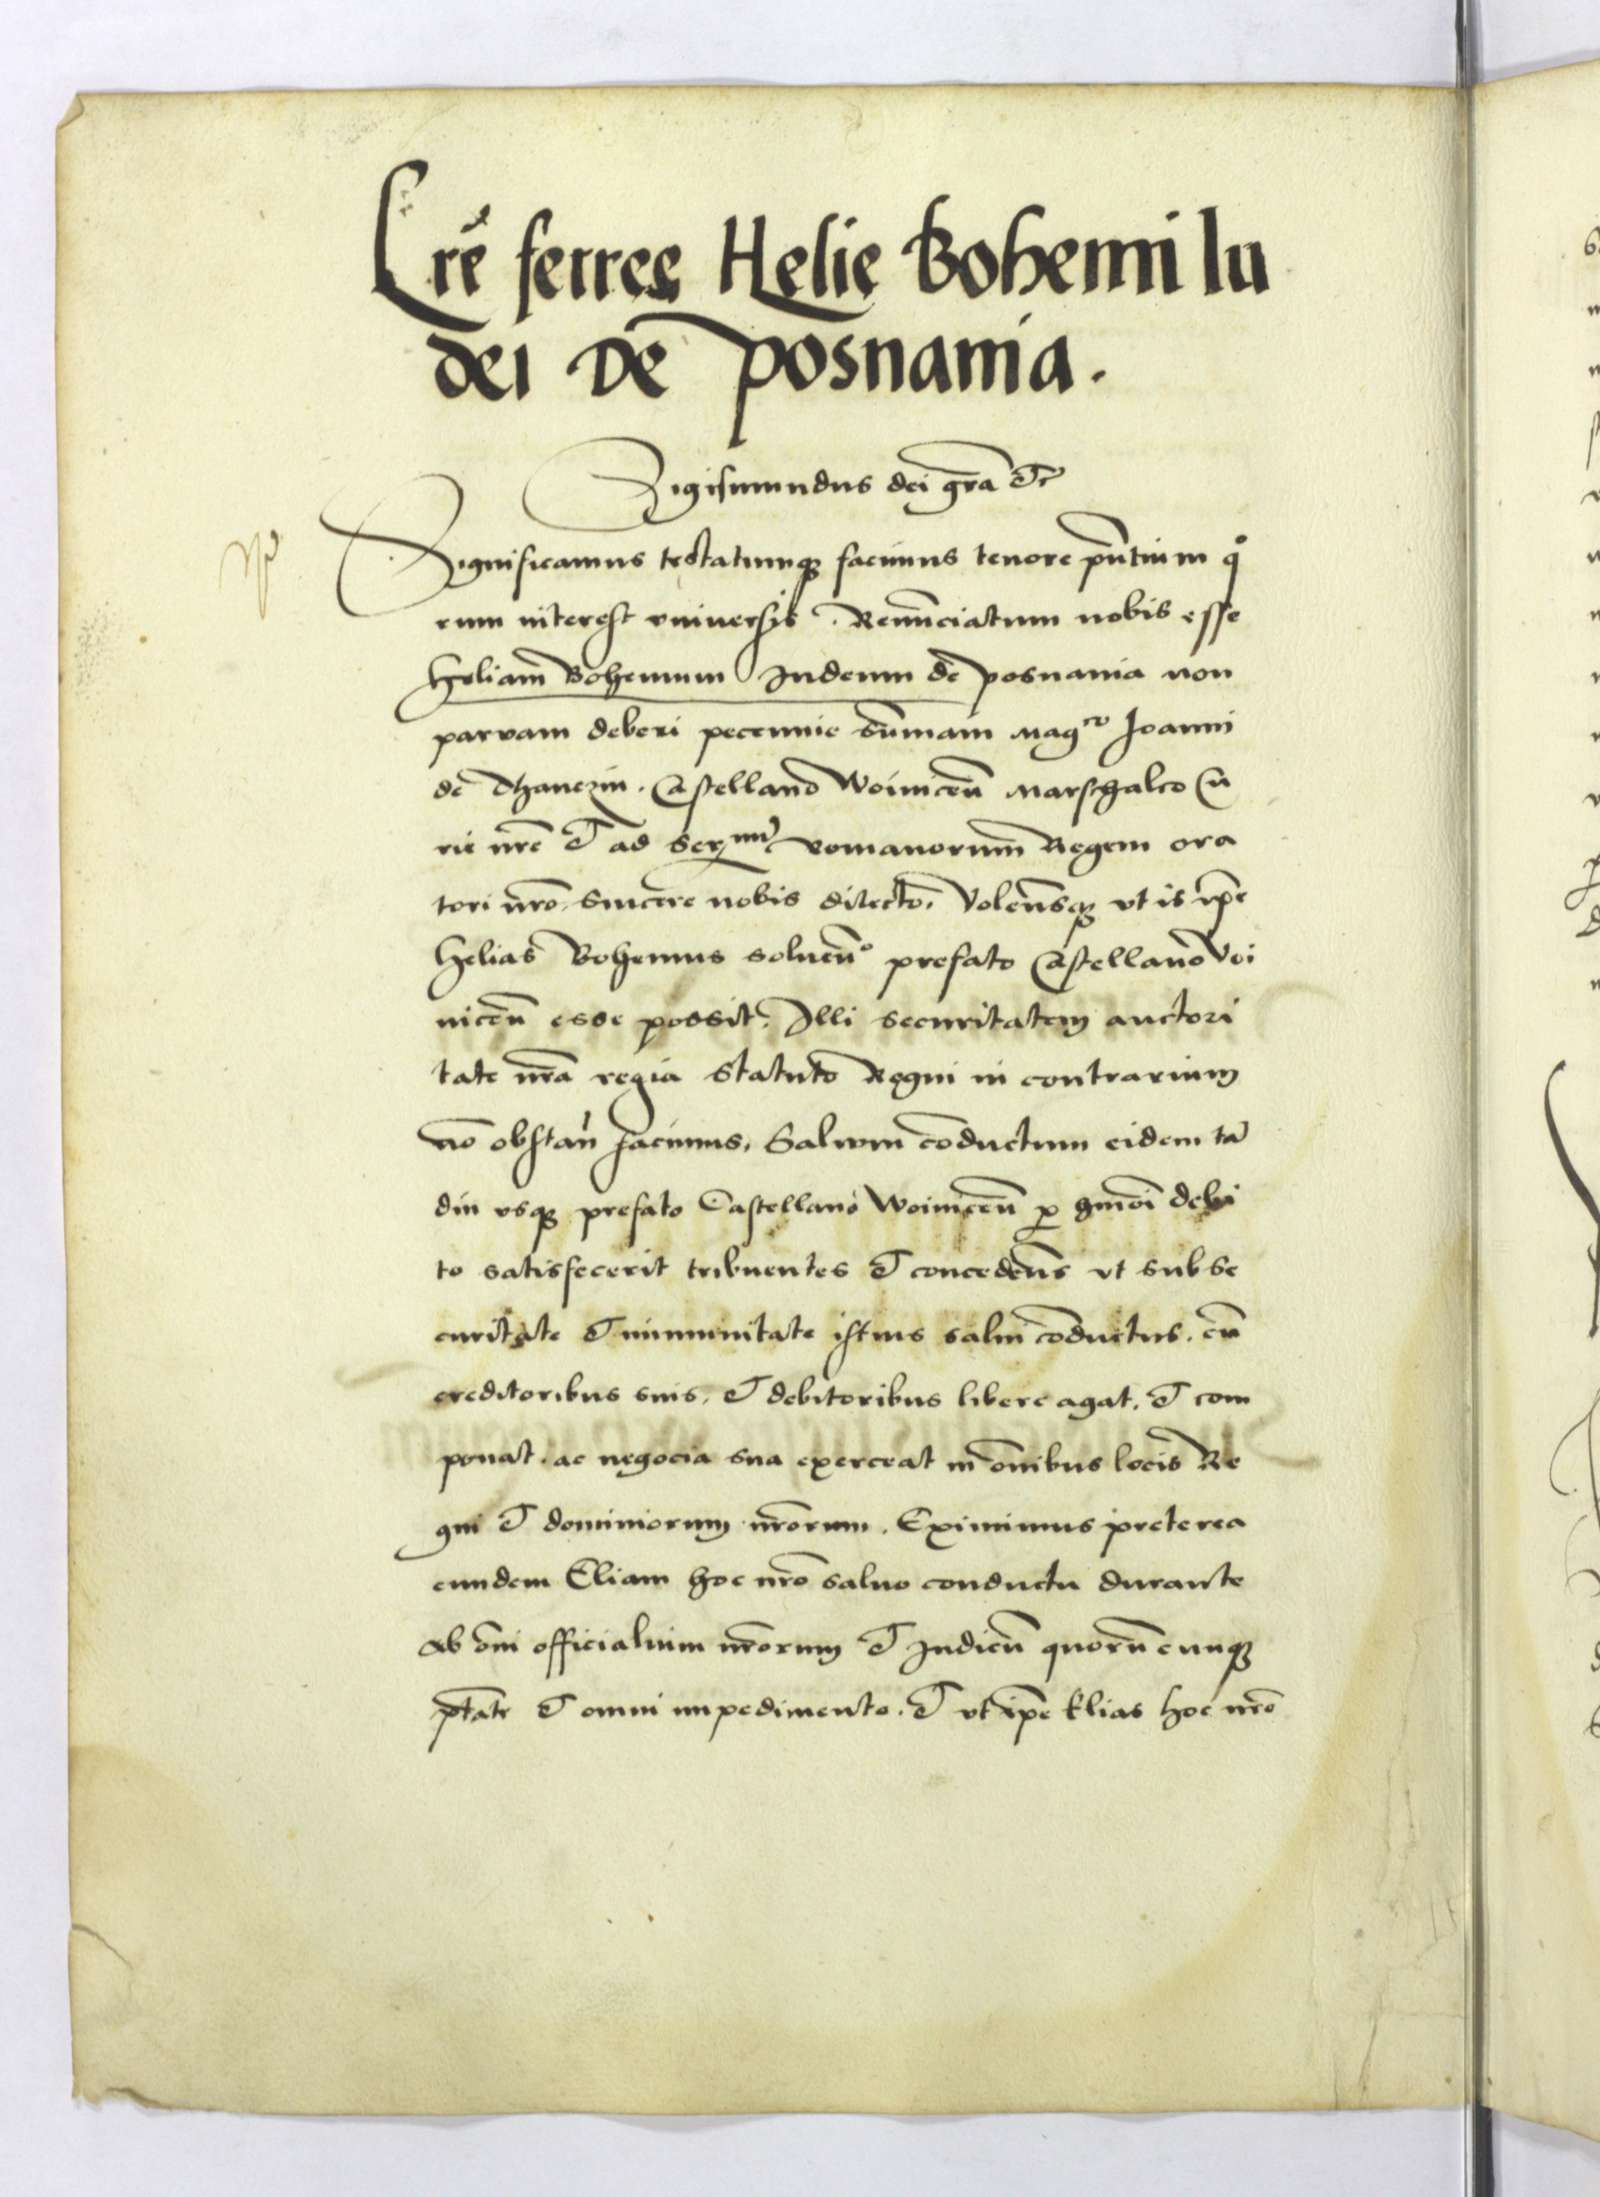 Lrē ferree Helie Bohemi Iu
dei De Posnania.
Sigismundus dei grā &c
Significamus testatumque facimus tenore pñtium qo
rum interest universis. Renunciatum nobis esse
Heliam Bohemum Iudeum de Posnania non
parvam deberi pecunnie sūmam Magco Ioanni
de Thanczin. Castellano Woinicēn Marschalco Cu
rie nrē & ad Sermū Romanorum Regem ora
tori nrō sincere nobis dilecto. Volensque ut is ipē
Helias Bohemus solvēn° prefato Castellano Voi
nicēn esse possit. Illi securitatem auctori
tate nrā regia Statuto Regni in contrarium
nō obstan̄ facimus, Salvum cōductum eidem tā
diu usque prefato Castellano Woinicēn p hmōi debi
to satisfecerit tribuentes & concedēns ut sub se
curitate & immunitate istius salvi cōductus. cū
creditoribus suis. & debitoribus libere agat. & com
ponat. ac negocia sua exerceat in ōnibus locis Re
gni & dominiorum nrōrum. Eximimus preterea
eundem Eliam hoc nrō salvo conductu durante
ab ōni officialium nrōrum & Iudicū quorūcunque
ptāte & omni impedimento. & ut ipē Elias hoc nrō